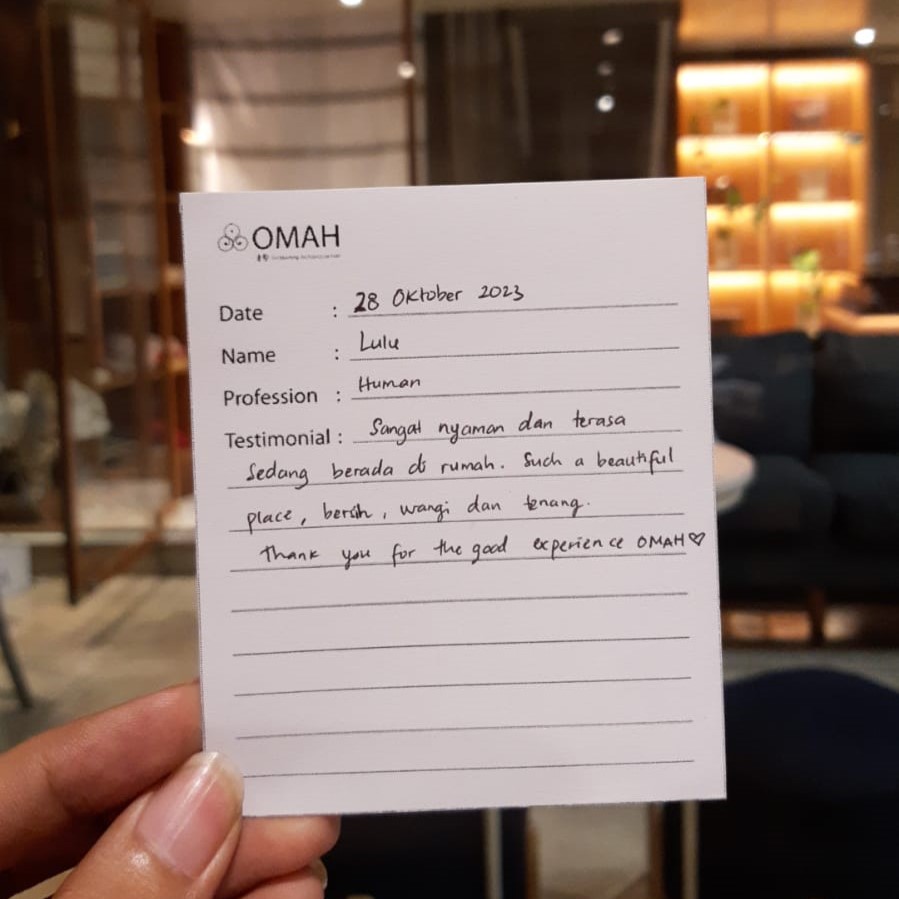 OMAH
Date : 28 Oktober 2023
Name : Lulu
Profession : Human
Testimonial : Sangat nyaman dan terasa
sedang berada di rumah. Such a beautiful
place, bersih, wangi dan tenang.
Thank you for the good experience OMAH♡